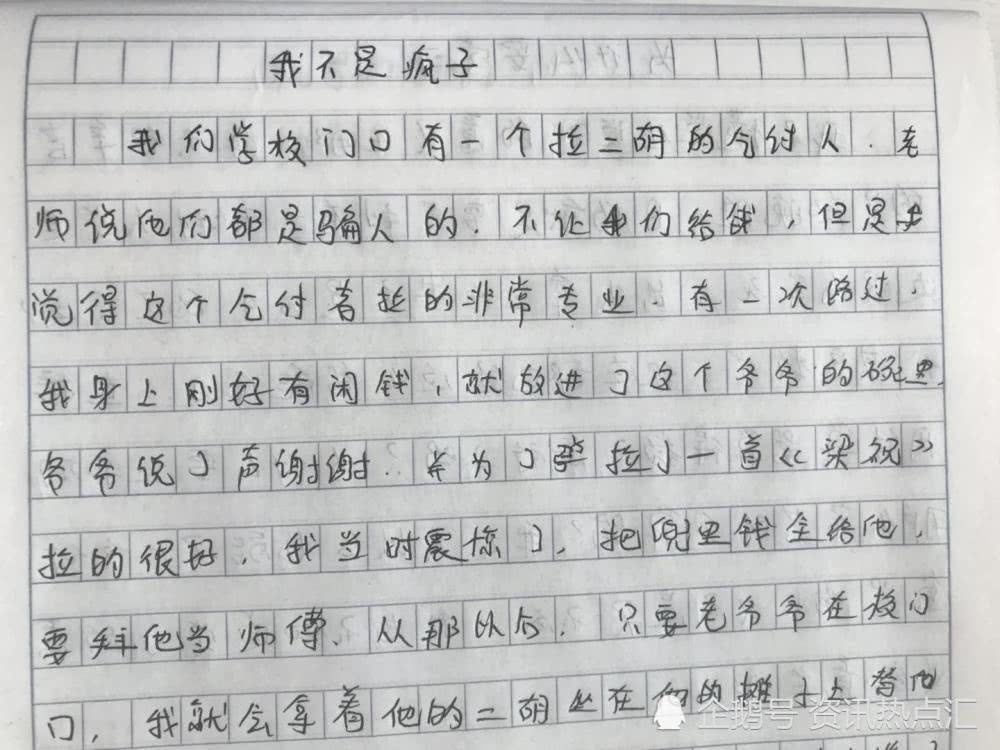 我不是疯子
我们学校门口有一个拉二胡的乞讨人.老
师说他们都是骗人的.不让我们给钱,但是我
觉得这个乞讨者拉的非常专业.有一次路过.
我身上刚好有闲钱,就放进了这个爷爷的碗里.
爷爷说了声谢谢.并为了拉了一首《梁祝》
拉的很好.我当时震惊了.把兜里钱全给他,
要拜他当师傅.从那以后.只要老爷爷在校门
门.我就会拿着他的二胡坐在他的摊子上替他
企鹅号 资讯热点汇